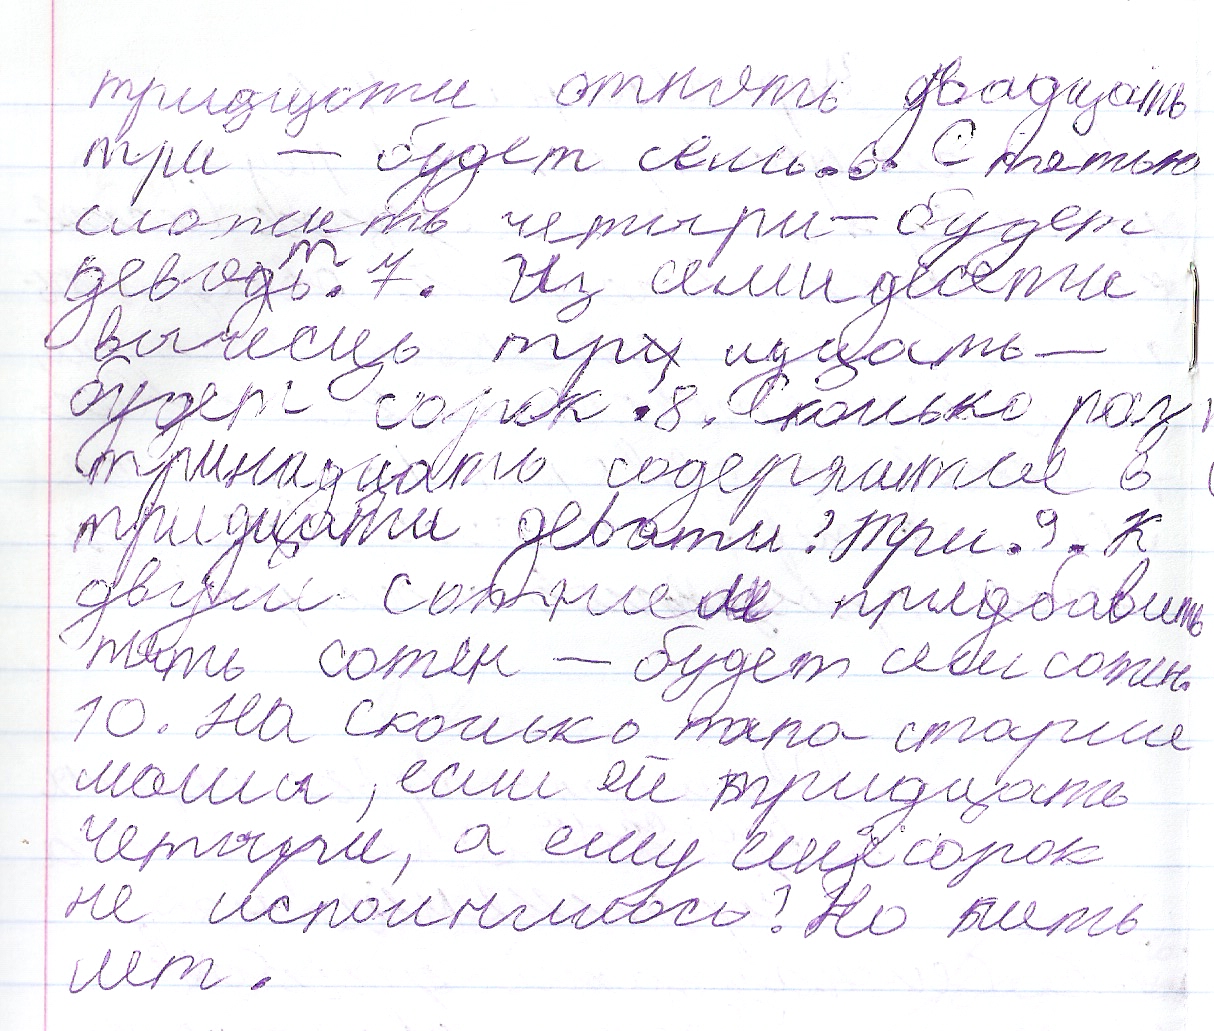 тридцати отнять двадцать
три — будет семь. 6. С пятью
сложить четыри — будет
девять. 7. Из семидесяти
вычесць три цать —
будет сорок. 8. Сколько раз
тринадцать содержится в
тридцати девяти? Три. 9. К
двум сотням придбавить
пять сотен — будет семь сотен.
10. На сколько папа старше
мамы, если ей тридцать
четыри, а ему ещё сорок
не исполнилось? На пять
лет.